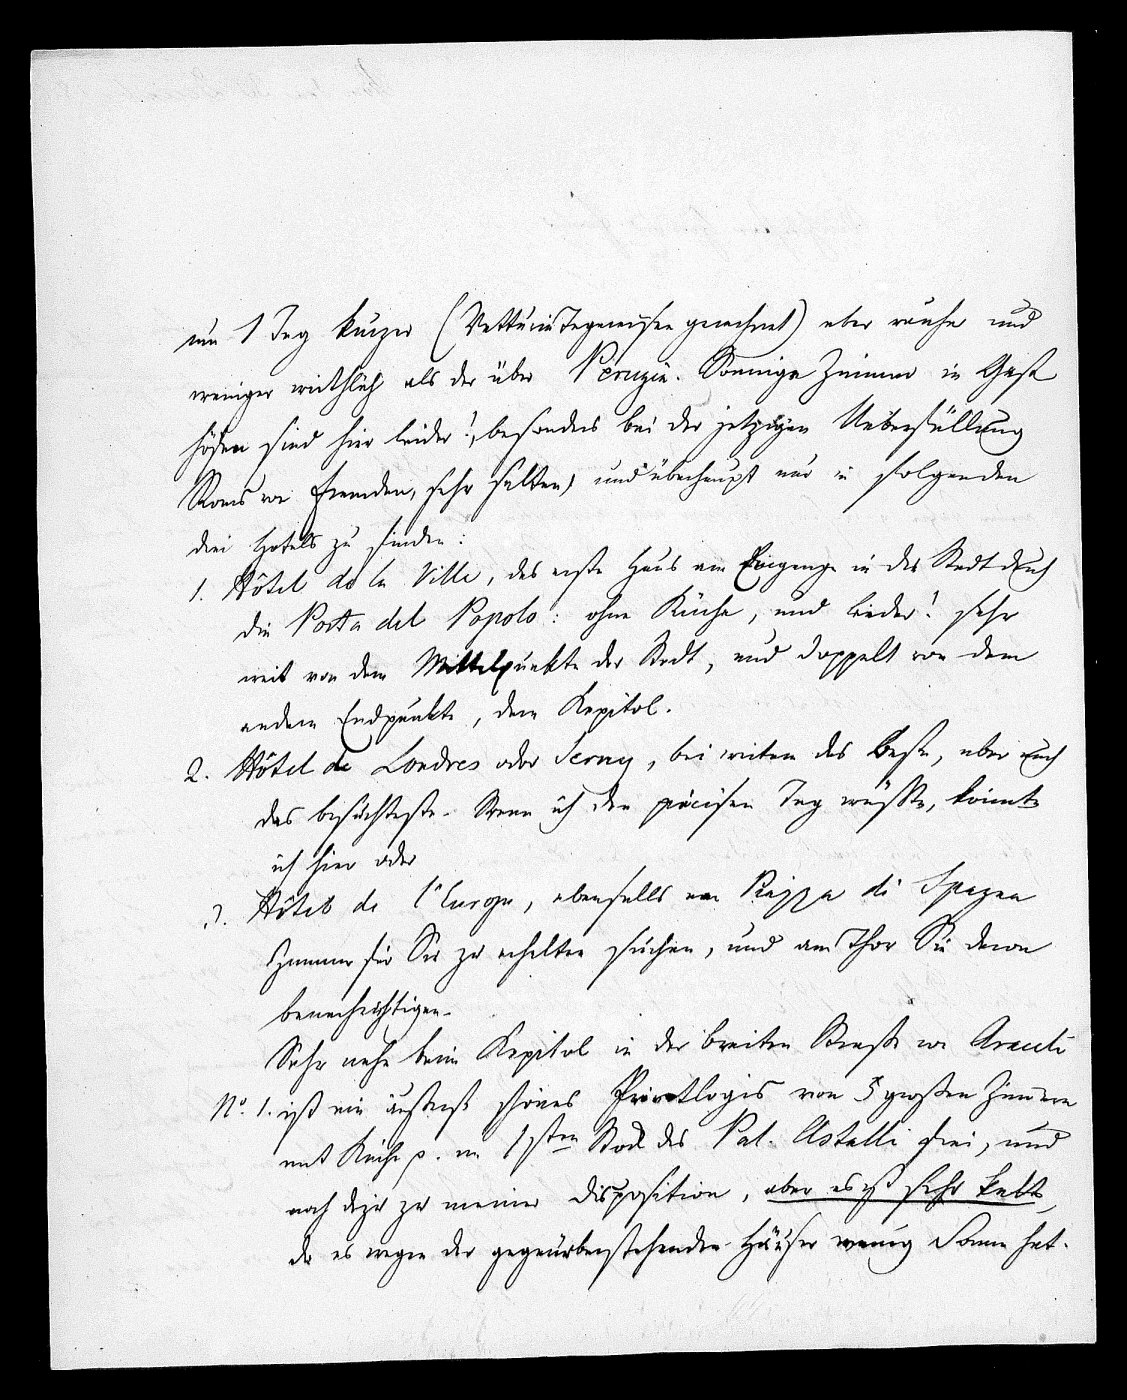 um 1 Tag kürzer (Vetturin Tagereisen gerechnet) aber rauher und
weniger wirthlich als der über Perugia. Sonnige Zimmer in Gast
höfen sind hier leider!, besonders bei der jetzigen Ueberfüllung
Roms von Fremden, sehr selten, und überhaupt nur in folgenden
drei Hotels zu finden:
1. Hôtel de la Ville, das erste Haus am Eingange in die Stadt durch
die Porta del Popolo: ohne Küche, und leider! sehr
weit von dem Mittelpunkte der Stadt, und doppelt von dem
andern Endpunkte, dem Kapitol.
2. Hôtel de Londres oder Serny, bei weitem das Beste, aber auch
das besuchteste. Wenn ich den präcisen Tag wüßte, könnte
ich hier oder
3. Hôtel de l'Europe, ebenfalls am Piazza di Spagna
Zimmer für Sie zu erhalten suchen, und am Thor Sie davon
benachrichtigen.
Sehr nahe beim Kapitol in der breiten Straße von Araceli
No. 1. ist ein äußerst schönes Privatlogis von 5 großen Zimmern
mit Küche p. im 1sten Stock des Pal. Astalli frei, und
noch dazu zu meiner Disposition, aber es ist sehr kalt,
da es wegen der gegenüberstehenden Häuser wenig Sonne hat.